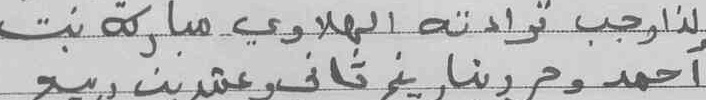 لذا وجب قراءته الهلاوي مباركة بنت
أحمد وحرر بتاريخ ثاني وعشرين ربيع